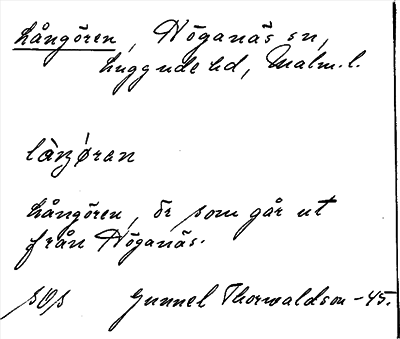 Långören, Höganäs sn,
Luggude hd, Malm. l.
làŋǿran
Långören, ör som går ut
från Höganäs.
sOs Gunnel Thorwaldson -45.